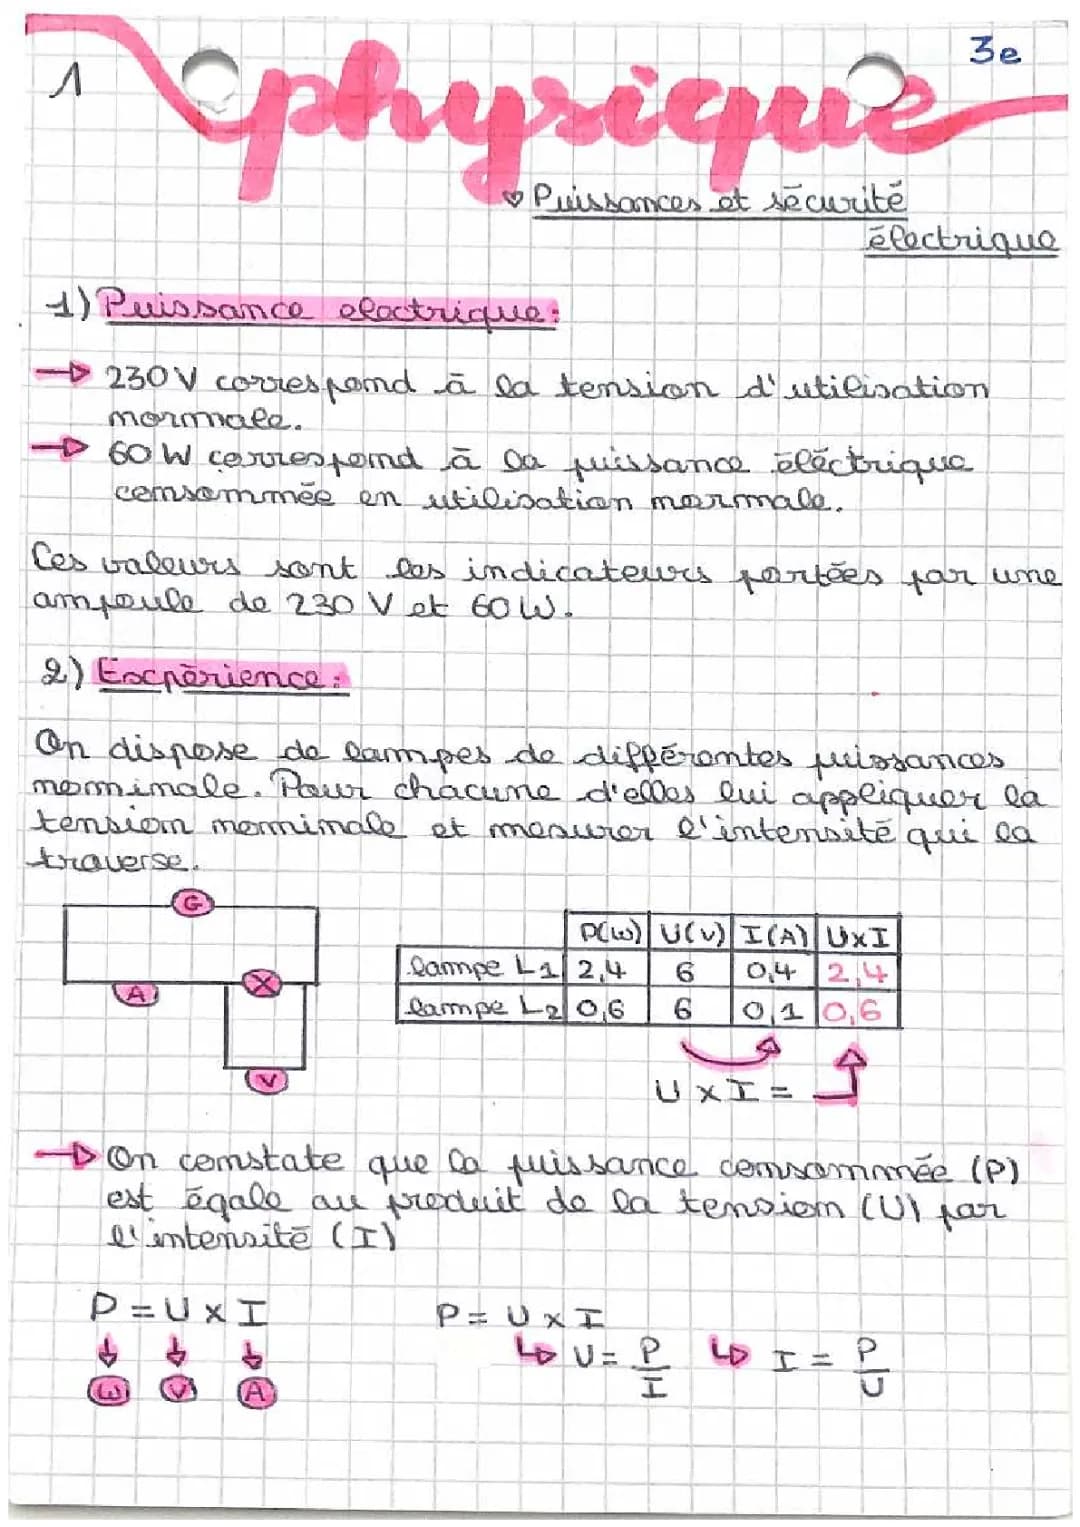 3e
1
physique
♡ Puissances et sécurité
électrique
1) Puissance electrique:
→ 230 V correspond à la tension d'utilisation
normale.
→ 60 W correspond à la puissance éléctrique
consommée en utilisation normale.
Ces valeurs sont les indicateurs portées par une
ampoule de 230 V et 60 W.
2) Expérience:
On dispose de lampes de différentes puissances
nominale. Pour chacune d'elles lui appliquer la
tension nominale et mesurer l'intensité qui la
traverse.
G
A X
V
P(W) U(V) I(A) UxI
lampe L1 2,4 6 0,4 2,4
lampe L2 0,6 6 0,1 0,6
U x I =
→ On constate que la puissance consommée (P)
est égale au produit de la tension (U) par
l'intensité (I)
P = U x I
W V A
P = U x I
↳ U = P/I ↳ I = P/U